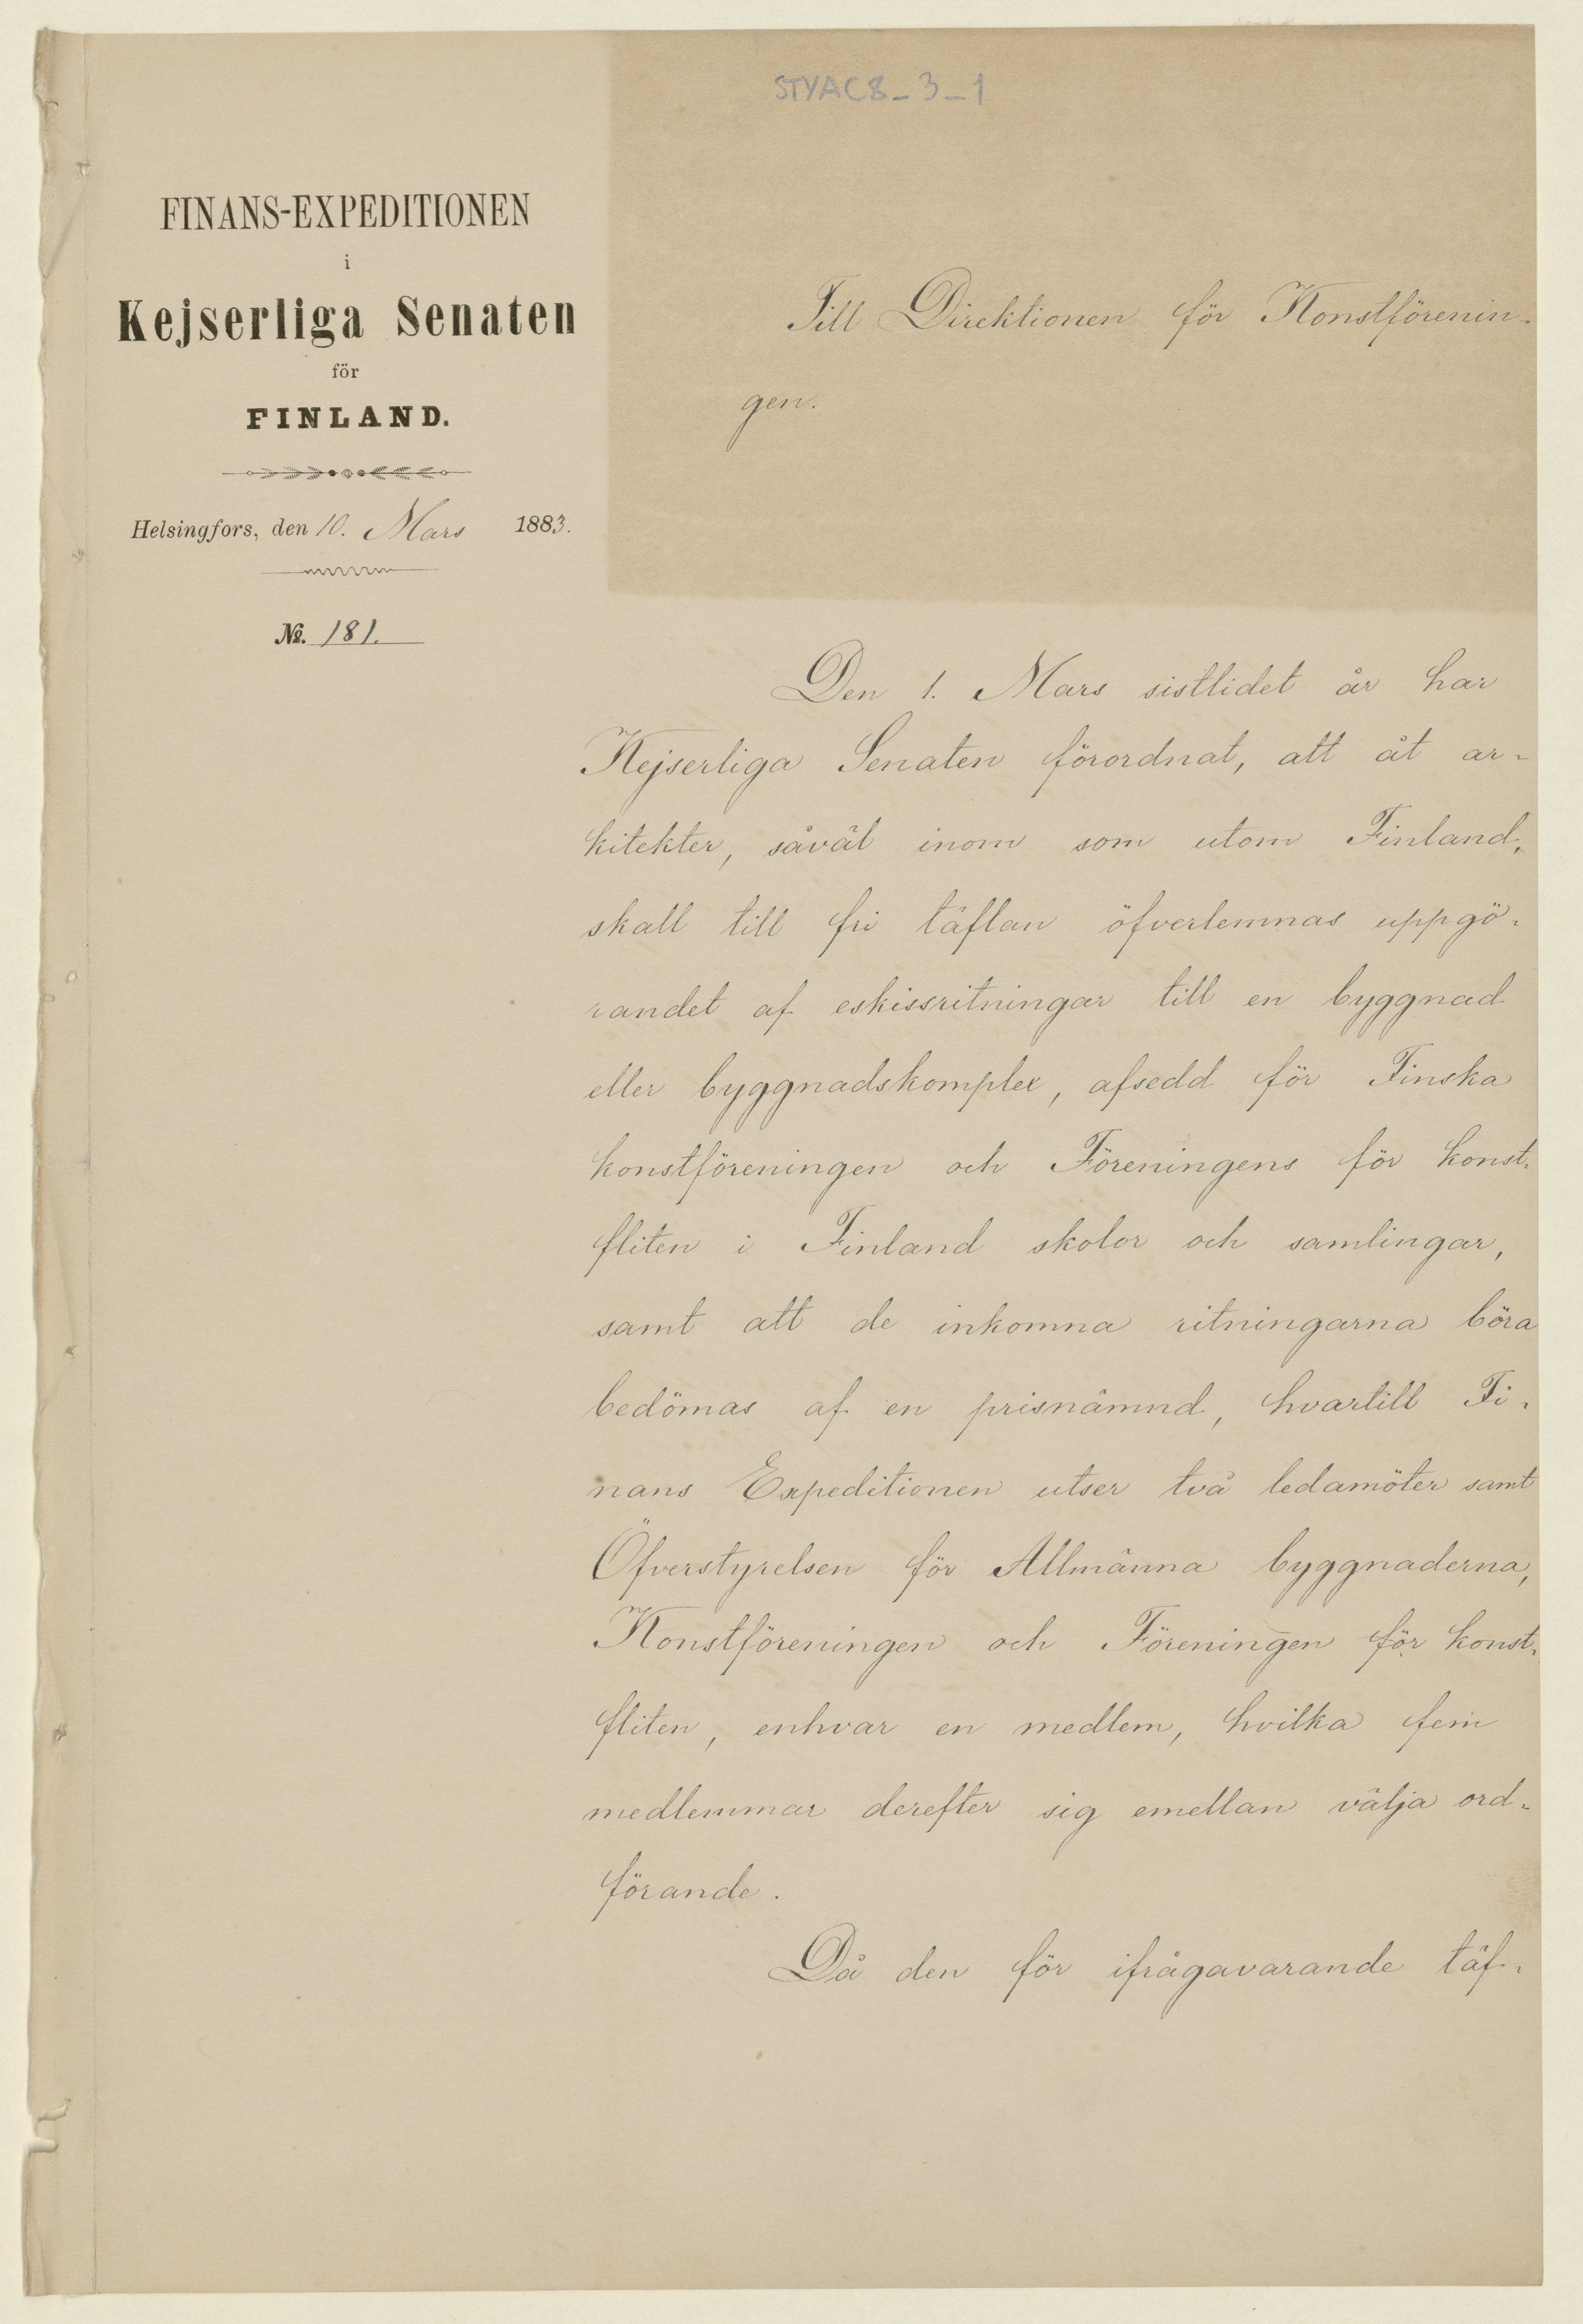 STYAC8_3_1
FINANS-EXPEDITIONEN
i
Kejserliga Senaten
för
FINLAND.
Helsingfors, den 10. Mars 1883.
№. 181.
Till Direktionen för Konstförenin-
gen.
Den 1. Mars sistlidet år har
Kejserliga Senaten förordnat, att åt ar-
kitekter, såväl inom som utom Finland,
skall till fri täflan öfverlemnas uppgö-
randet af eskissritningar till en byggnad
eller byggnadskomplex, afsedd för Finska
konstföreningen och Föreningens för konst-
fliten i Finland skolor och samlingar,
samt att de inkomna ritningarna böra
bedömas af en prisnämnd, hvartill Fi-
nans Expeditionen utser två ledamöter samt
Öfverstyrelsen för Allmänna byggnaderna,
Konstföreningen och Föreningen för konst-
fliten, enhvar en medlem, hvilka fem
medlemmar derefter sig emellan välja ord-
förande.
Då den för ifrågavarande täf-